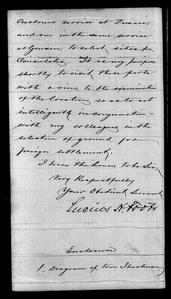 Customs service at Fusan,
and one in the same service
at Gensan to select sites for
Consulates. It is my purpose
shortly to visit these ports
with a view to the examination
of the locations, so as to act
intelligently in conjunction
with my colleagues in the
selection of ground for
foreign settlement.
I have the honor to be Sir,
Very Respectfully
Your Obedient Servant
Lucius H. Foote
Enclosure
1. Diagram of